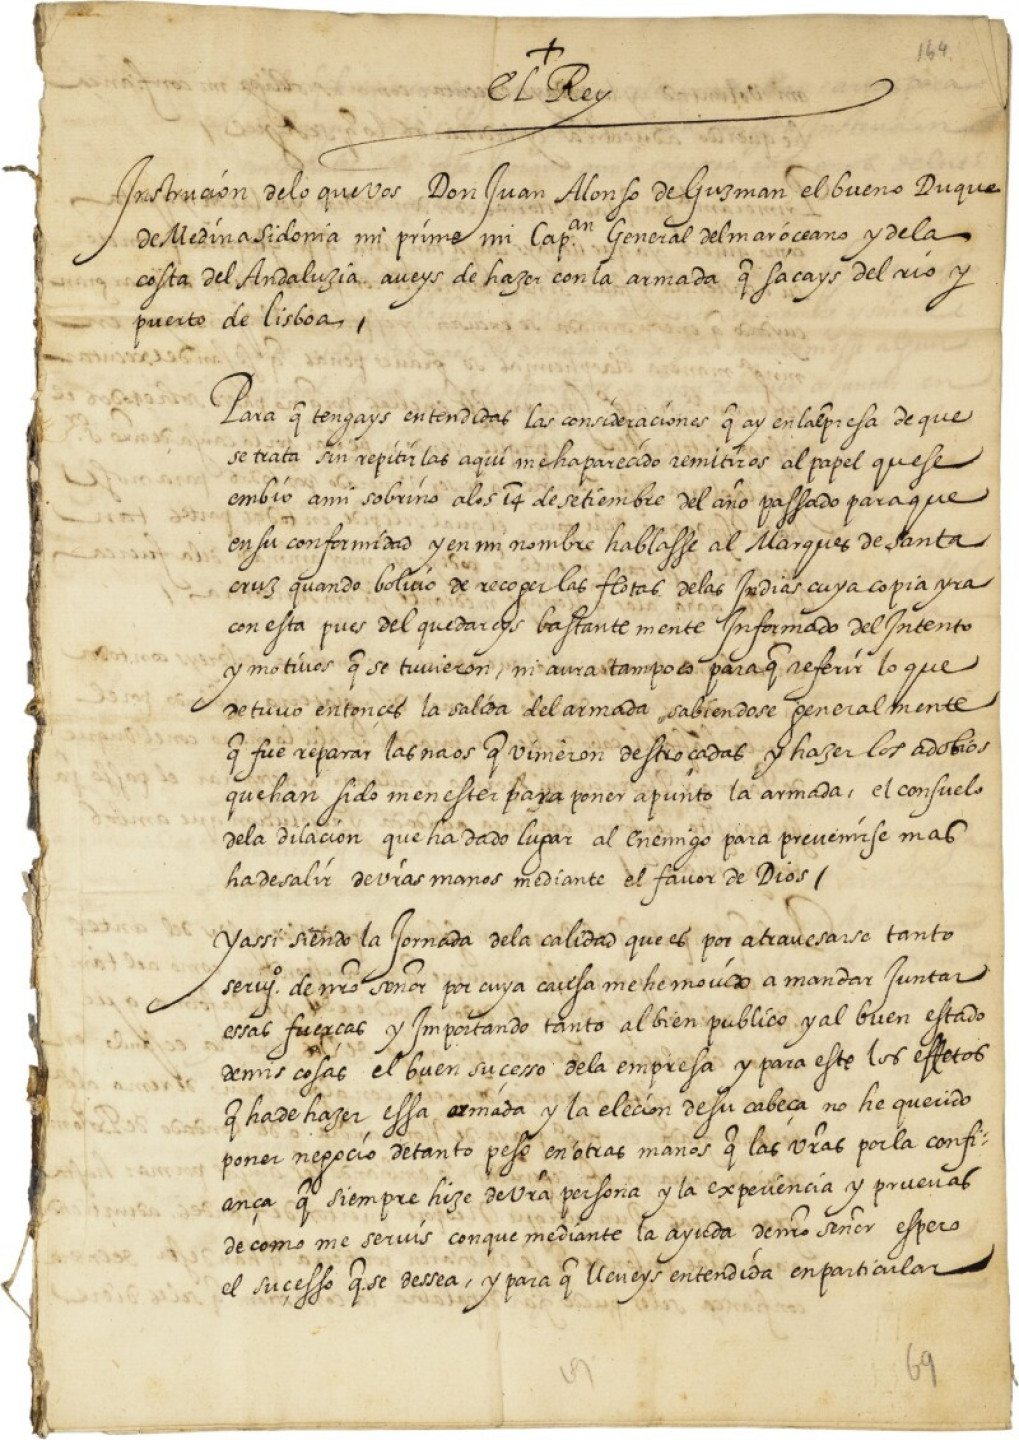 164.
+
El Rey
Instrución delo que vos Don Juan Alonso de Guzman el bueno Duque
de Medina Sidonia mi primo mi Cap.an General del mar oceano y dela
costa del Andaluzia aveys de hazer con la armada q̃ sacays del rio y
puerto de lisboa, /
Para q̃ tengays entendidas las consideraciones q̃ ay en la epresa de que
se trata sin repitirlas aqui me ha parecido remitiros al papel que se
embió a mi sobrino a los 14 de setiembre del año passado para que
en su conformidad y en mi nombre hablasse al Marques de Santa
cruz quando bolvió de recoger las flotas delas Indias cuya copia yra
con esta pues del quedareys bastantemente Informado del Intento
y motivos q̃ se tuvieron, ni aura tampoco para q̃ referir lo que
detuvo entonces la salida del armada, sabiendose generalmente
q̃ fue reparar las naos q̃ vinieron destroçadas y hazer los adobios
que han sido menester para poner a punto la armada, el consuelo
dela dilacion que ha dado lugar al Enemigo para prevenirse mas
ha de salir de vr̃as manos mediante el favor de Dios /
Y assi siendo la Jornada dela calidad que es por atravesarse tanto
servi.o de nr̃o señor por cuya causa me he movido a mandar Juntar
essas fuerças y Importando tanto al bien publico y al buen estado
de mis cosas el buen suçesso dela empresa y para esto los effetos
q̃ ha de hazer essa armada y la eleción de su cabeça no he querido
poner negoció de tanto peso en otras manos q̃ las vr̃as por la confi-
ança q̃ siempre hize de vr̃a persona y la experiencia y pruevas
de como me servis con que mediante la ayuda de nr̃o señor espero
el suçesso q̃ se dessea, y para q̃ lleveys entendida en particular
69